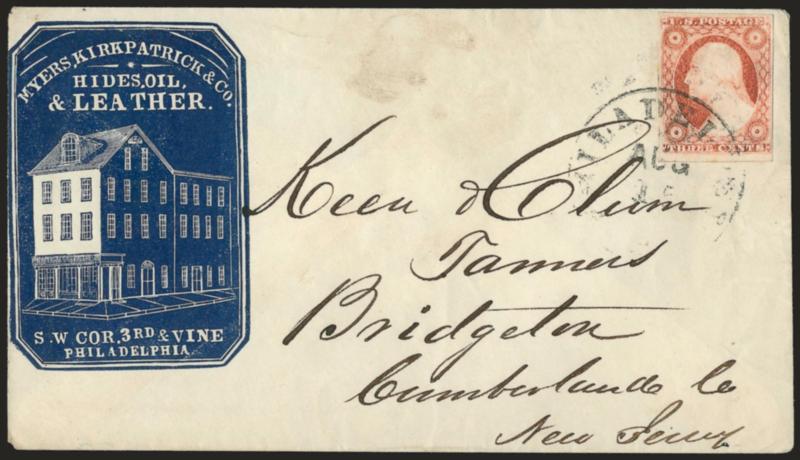 MYERS, KIRKPATRICK & CO.
HIDES, OIL,
& LEATHER.
S.W COR. 3RD & VINE
PHILADELPHIA.
U.S. POSTAGE
THREE CENTS
PHILADEL
AUG
Keen & Clum
Tanners
Bridgeton
Cumberlande Co
New Jersey